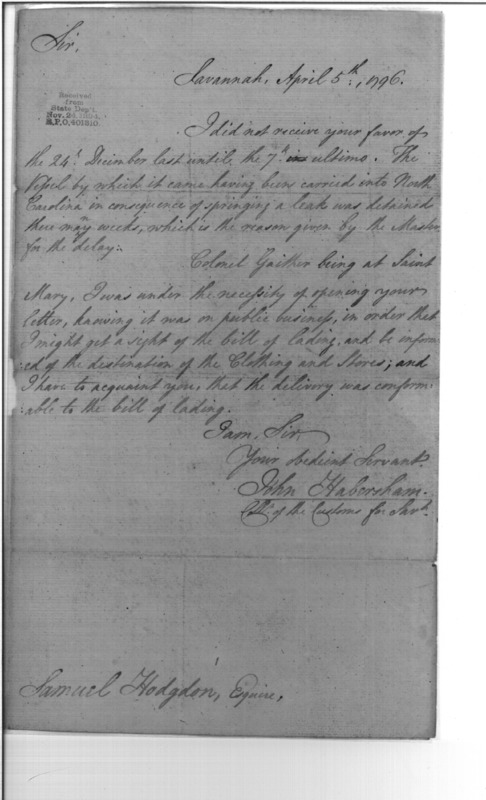 Sir,
Savannah, April 5th, 1796.
Received
from
State Dep't.
Nov. 24, 1894,
R.P.O, 401810.
I did not receive your favor of
the 24t. December last until, the 7th ultimo. The
Vessel by which it came having been carried into North
Carolina in consequence of springing a leak was detained
there many weeks, which is the reason given by the Master
for the delay:
Colonel Gaither being at Saint
Mary, I was under the necessity of opening your
letter, knowing it was on public business, in order that
I might get a sight of the bill of lading, and be inform:
:ed of the destination of the Clothing and Stores; and
I have to acquaint you, that the delivery was conform:
:able to the bill of lading.
I am, Sir,
Your obedient Servant.
John Habersham.
Collr. of the Customs for Savh.
Samuel Hodgdon, Equire,